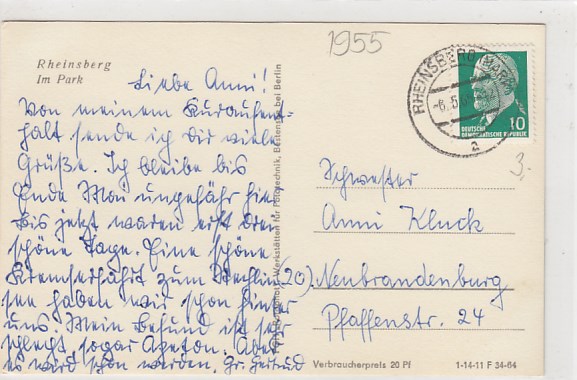 1955
Rheinsberg
Im Park
RHEINSBERG (MARK)
-6.5.6
a
10
DEUTSCHE
DEMOKRATISCHE REPUBLIK
3,-
Liebe Anni!
Von meinem Kuraufent-
halt sende ich dir viele
Grüße. Ich bleibe bis
Ende Mai ungefähr hier,
bis jetzt waren erst drei
schöne Tage. Eine schöne
Kremserfahrt zum Stechlin
see haben wir schon hinter
uns. Mein Befund ist sehr
schlecht, sogar Azeton. Aber
es wird schon werden. Ihr Gertrud
Werkstätten für Polytechnik, bei Berlin
Schwester
Anni Kluck
(20) Neubrandenburg
Pfaffenstr. 24
Verbraucherpreis 20 Pf
1-14-11 F 34-64